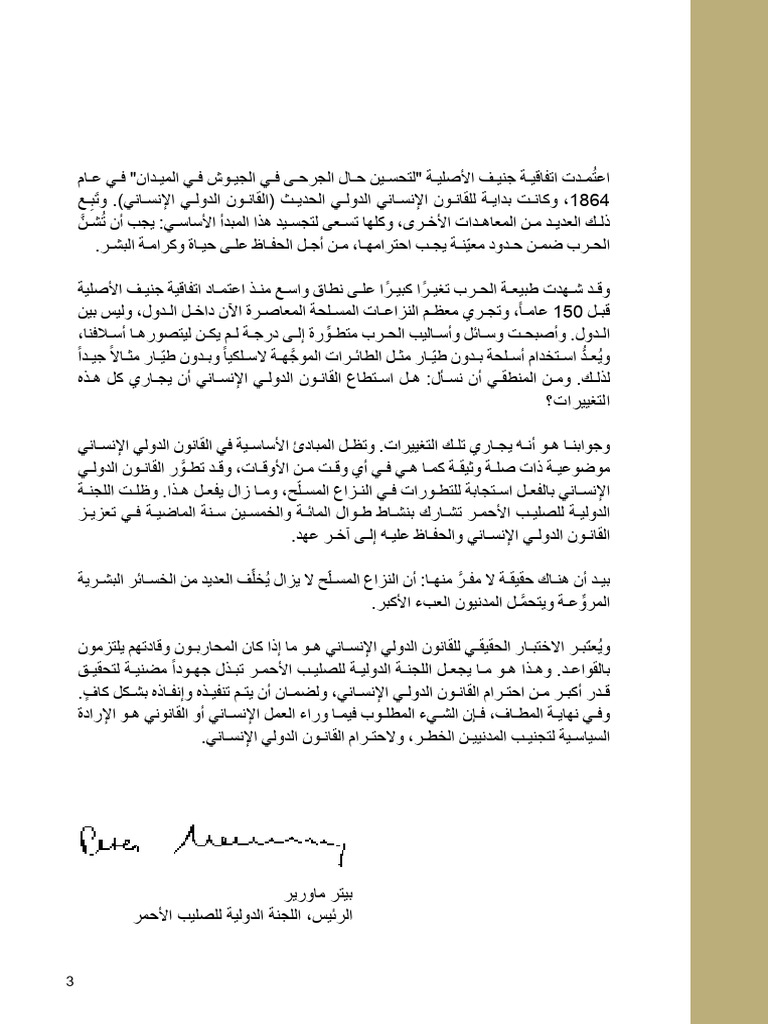 اعتُمدت اتفاقية جنيف الأصلية "لتحسين حال الجرحى في الجيوش في الميدان" في عام
1864، وكانت بداية للقانون الإنساني الدولي الحديث (القانون الدولي الإنساني). وتَبِع
ذلك العديد من المعاهدات الأخرى، وكلها تسعى لتجسيد هذا المبدأ الأساسي: يجب أن تُشنَّ
الحرب ضمن حدود معيّنة يجب احترامها، من أجل الحفاظ على حياة وكرامة البشر.
وقد شهدت طبيعة الحرب تغيرًا كبيرًا على نطاق واسع منذ اعتماد اتفاقية جنيف الأصلية
قبل 150 عاماً، وتجري معظم النزاعات المسلحة المعاصرة الآن داخل الدول، وليس بين
الدول. وأصبحت وسائل وأساليب الحرب متطوِّرة إلى درجة لم يكن ليتصورها أسلافنا،
ويُعدُّ استخدام أسلحة بدون طيّار مثل الطائرات الموجَّهة لاسلكياً وبدون طيّار مثالاً جيداً
لذلك. ومن المنطقي أن نسأل: هل استطاع القانون الدولي الإنساني أن يجاري كل هذه
التغييرات؟
وجوابنا هو أنه يجاري تلك التغييرات. وتظل المبادئ الأساسية في القانون الدولي الإنساني
موضوعية ذات صلة وثيقة كما هي في أي وقت من الأوقات، وقد تطوَّر القانون الدولي
الإنساني بالفعل استجابة للتطورات في النزاع المسلّح، وما زال يفعل هذا. وظلت اللجنة
الدولية للصليب الأحمر تشارك بنشاط طوال المائة والخمسين سنة الماضية في تعزيز
القانون الدولي الإنساني والحفاظ عليه إلى آخر عهد.
بيد أن هناك حقيقة لا مفرَّ منها: أن النزاع المسلّح لا يزال يُخلّف العديد من الخسائر البشرية
المروِّعة ويتحمَّل المدنيون العبء الأكبر.
ويُعتَبر الاختبار الحقيقي للقانون الدولي الإنساني هو ما إذا كان المحاربون وقادتهم يلتزمون
بالقواعد. وهذا هو ما يجعل اللجنة الدولية للصليب الأحمر تبذل جهوداً مضنية لتحقيق
قدر أكبر من احترام القانون الدولي الإنساني، ولضمان أن يتم تنفيذه وإنفاذه بشكل كافٍ.
وفي نهاية المطاف، فإن الشيء المطلوب فيما وراء العمل الإنساني أو القانوني هو الإرادة
السياسية لتجنيب المدنيين الخطر، ولاحترام القانون الدولي الإنساني.
Peter
بيتر ماورير
الرئيس، اللجنة الدولية للصليب الأحمر
3